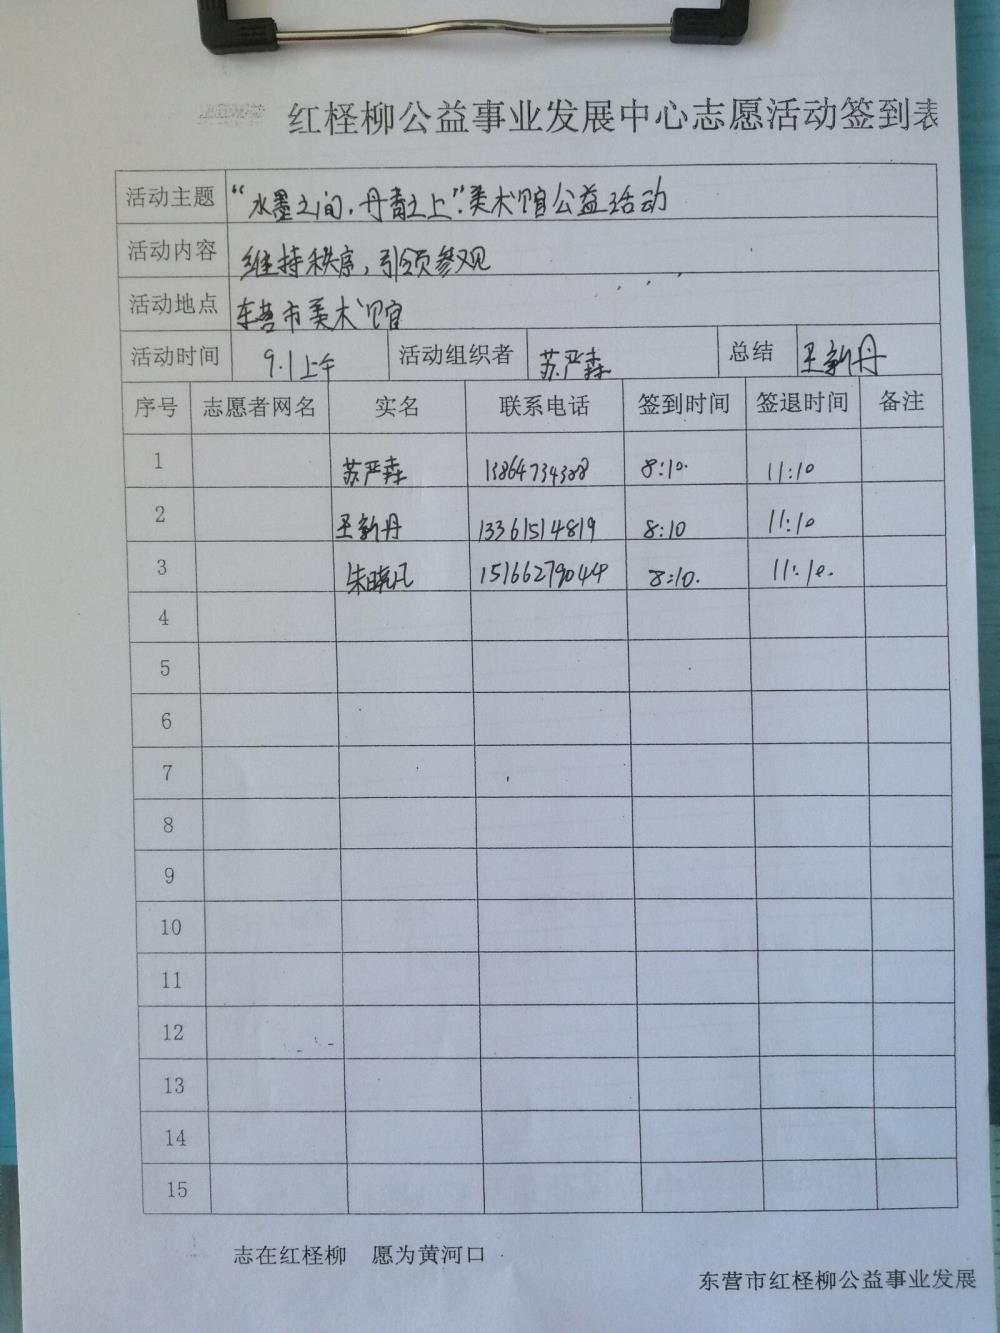 红柽柳公益事业发展中心志愿活动签到表
活动主题 “水墨之间，丹青之上”美术馆公益活动
活动内容 维持秩序，引领参观
活动地点 东营市美术馆
活动时间 9.1上午 活动组织者 苏严森 总结 王新丹
序号 志愿者网名 实名 联系电话 签到时间 签退时间 备注
1 苏严森 13864734388 8:10. 11:10
2 王新丹 13361514819 8:10 11:10
3 朱晓凡 15166279044 8:10. 11:10.
4
5
6
7
8
9
10
11
12
13
14
15
志在红柽柳 愿为黄河口
东营市红柽柳公益事业发展